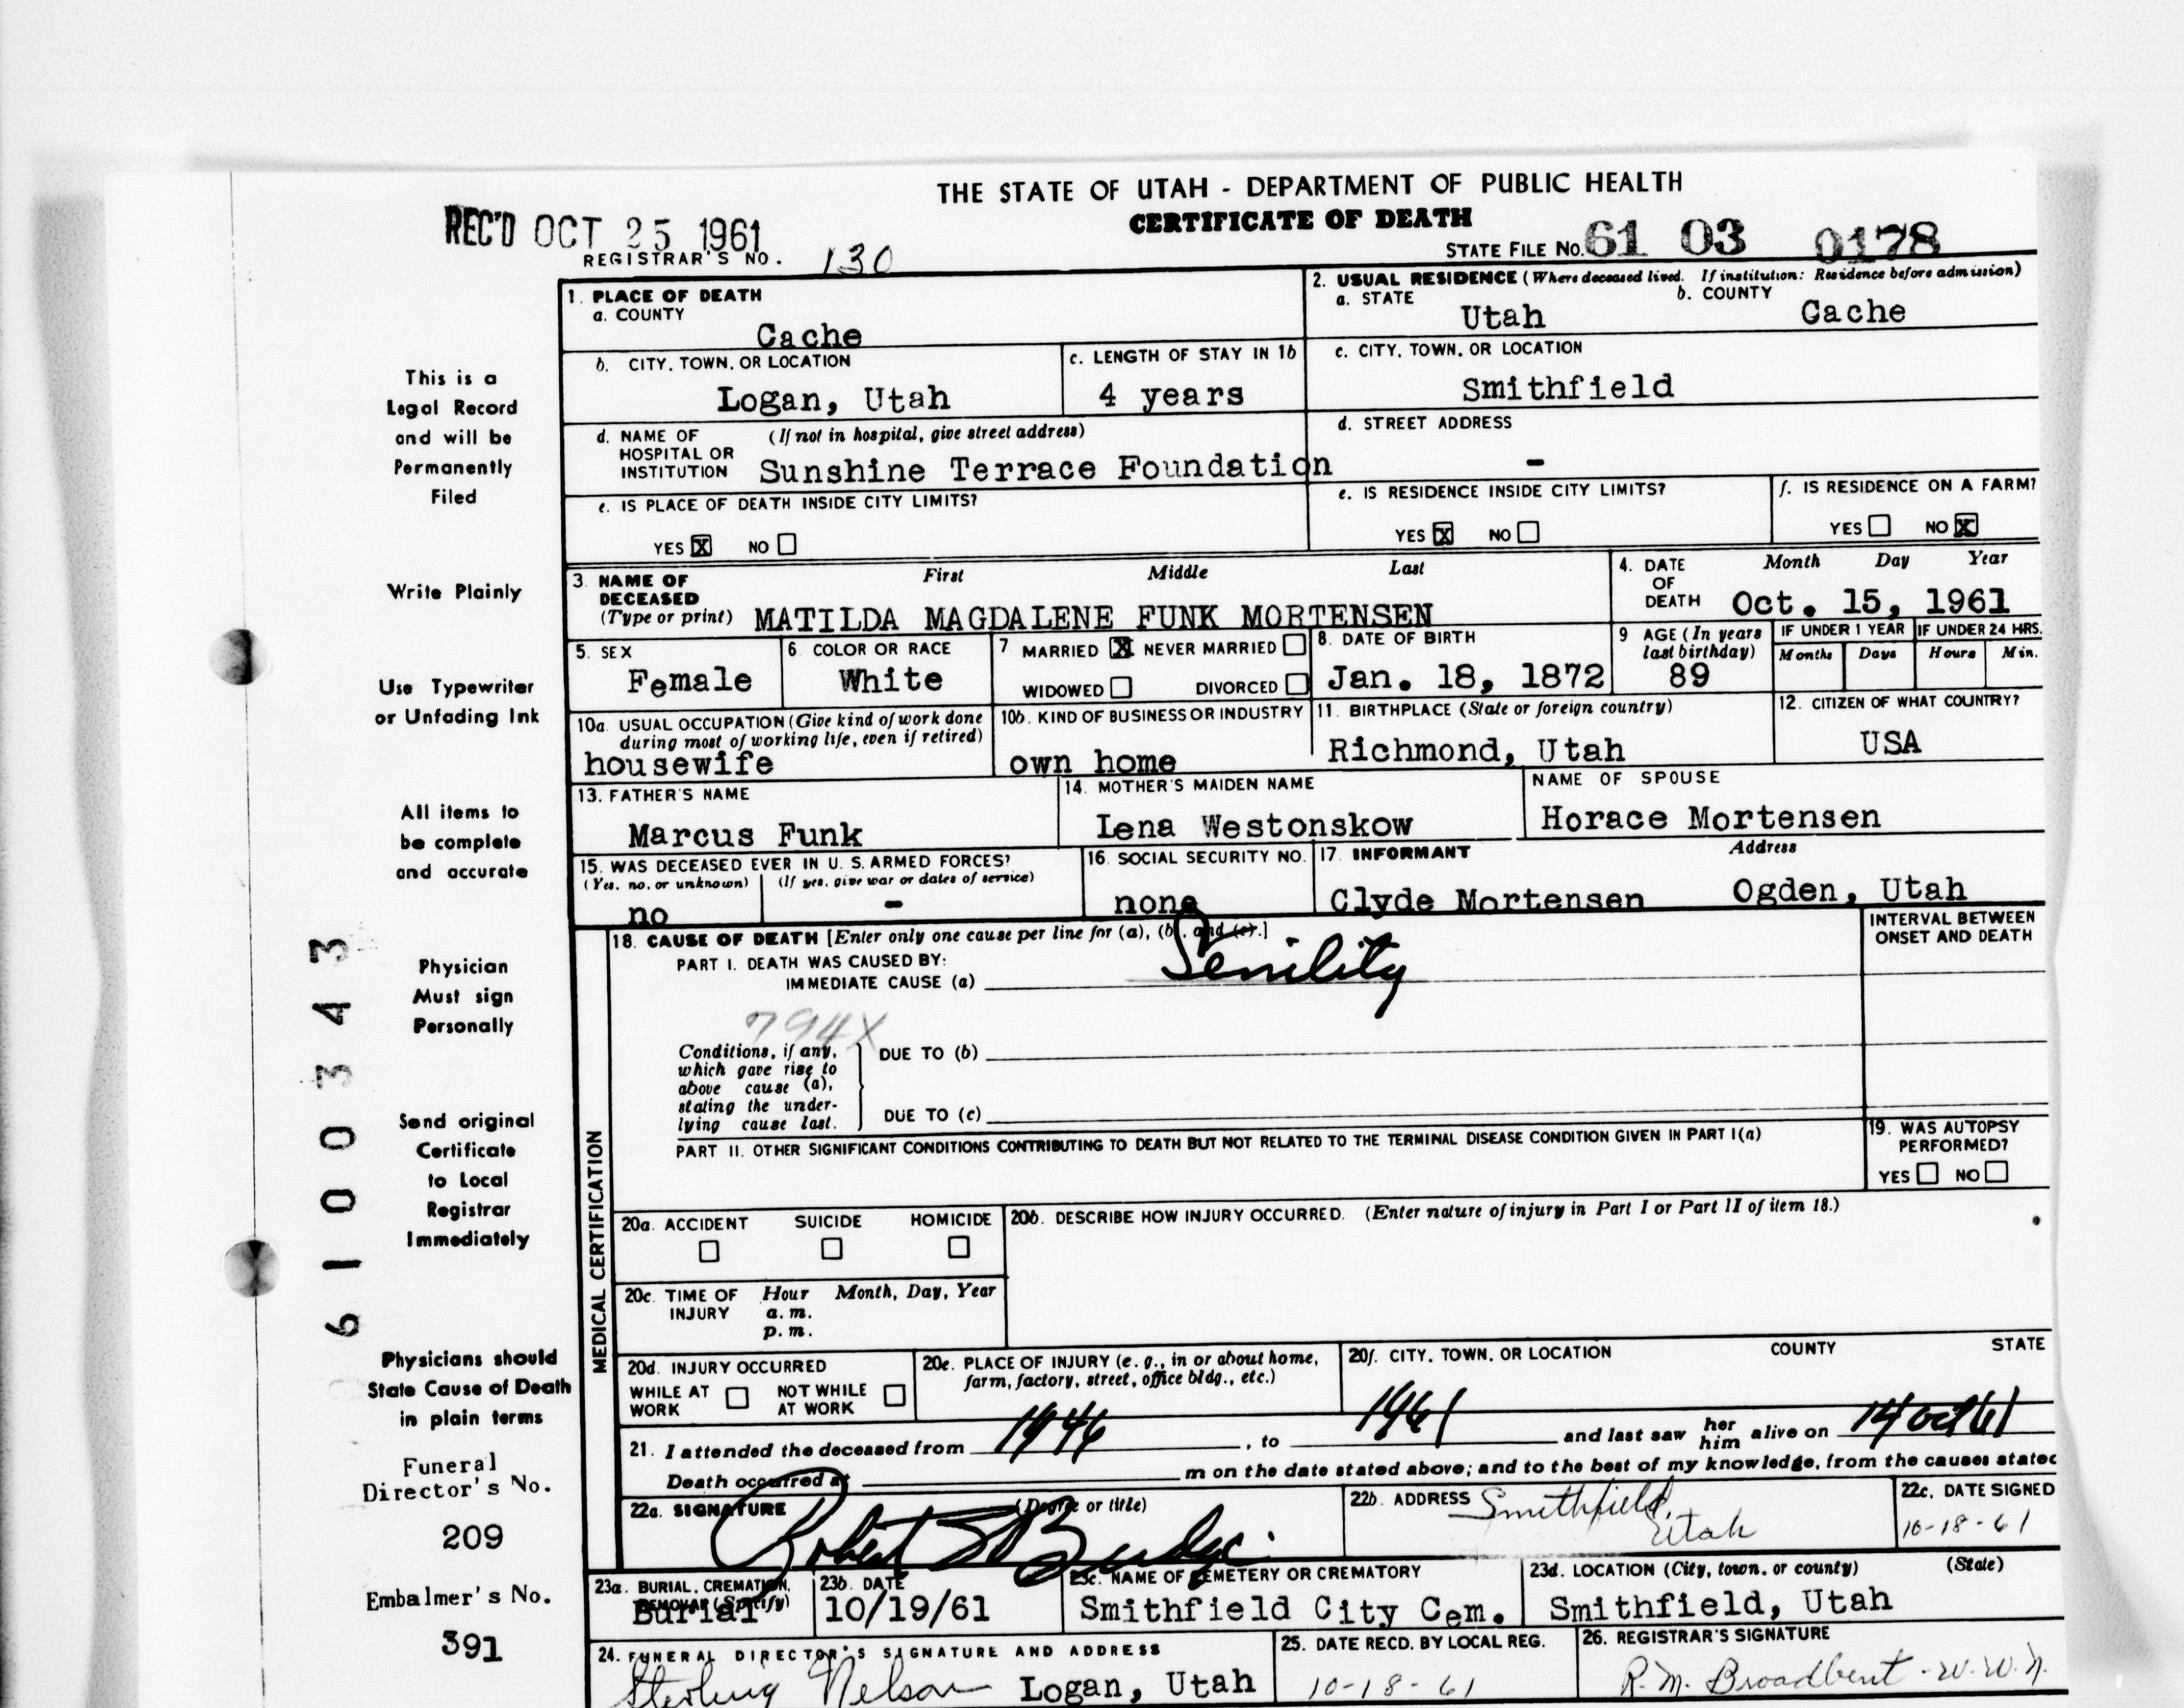 THE STATE OF UTAH - DEPARTMENT OF PUBLIC HEALTH
CERTIFICATE OF DEATH
REC'D OCT 25 1961
REGISTRAR'S NO. 130
STATE FILE NO. 61 03 0178
1. PLACE OF DEATH
a. COUNTY
Cache
2. USUAL RESIDENCE (Where deceased lived. If institution: Residence before admission)
a. STATE
Utah
b. COUNTY
Cache
b. CITY, TOWN, OR LOCATION
Logan, Utah
c. LENGTH OF STAY IN 1b
4 years
c. CITY, TOWN, OR LOCATION
Smithfield
d. NAME OF HOSPITAL OR INSTITUTION (If not in hospital, give street address)
Sunshine Terrace Foundation
d. STREET ADDRESS
-
e. IS PLACE OF DEATH INSIDE CITY LIMITS?
YES X NO
e. IS RESIDENCE INSIDE CITY LIMITS?
YES X NO
f. IS RESIDENCE ON A FARM?
YES NO X
3. NAME OF DECEASED (Type or print)
First Middle Last
MATILDA MAGDALENE FUNK MORTENSEN
4. DATE OF DEATH
Month Day Year
Oct. 15, 1961
5. SEX
Female
6. COLOR OR RACE
White
7. MARRIED X NEVER MARRIED
WIDOWED DIVORCED
8. DATE OF BIRTH
Jan. 18, 1872
9 AGE (In years last birthday)
89
IF UNDER 1 YEAR
Months Days
IF UNDER 24 HRS.
Hours Min.
10a. USUAL OCCUPATION (Give kind of work done during most of working life, even if retired)
housewife
10b. KIND OF BUSINESS OR INDUSTRY
own home
11. BIRTHPLACE (State or foreign country)
Richmond, Utah
12. CITIZEN OF WHAT COUNTRY?
USA
13. FATHER'S NAME
Marcus Funk
14. MOTHER'S MAIDEN NAME
Lena Westonskow
NAME OF SPOUSE
Horace Mortensen
15. WAS DECEASED EVER IN U. S. ARMED FORCES?
(Yes, no, or unknown) (If yes, give war or dates of service)
no -
16. SOCIAL SECURITY NO.
none
17. INFORMANT Address
Clyde Mortensen Ogden, Utah
MEDICAL CERTIFICATION
18. CAUSE OF DEATH [Enter only one cause per line for (a), (b), and (c).]
INTERVAL BETWEEN ONSET AND DEATH
PART I. DEATH WAS CAUSED BY:
IMMEDIATE CAUSE (a) Senility
794X
Conditions, if any, which gave rise to above cause (a), stating the underlying cause last.
DUE TO (b)
DUE TO (c)
PART II. OTHER SIGNIFICANT CONDITIONS CONTRIBUTING TO DEATH BUT NOT RELATED TO THE TERMINAL DISEASE CONDITION GIVEN IN PART I(a)
19. WAS AUTOPSY PERFORMED?
YES NO
20a. ACCIDENT SUICIDE HOMICIDE
20b. DESCRIBE HOW INJURY OCCURRED. (Enter nature of injury in Part I or Part II of item 18.)
20c. TIME OF INJURY
Hour Month, Day, Year
a. m.
p. m.
20d. INJURY OCCURRED
WHILE AT WORK NOT WHILE AT WORK
20e. PLACE OF INJURY (e. g., in or about home, farm, factory, street, office bldg., etc.)
20f. CITY, TOWN, OR LOCATION COUNTY STATE
21. I attended the deceased from 1946, to 1961 and last saw her him alive on 14 oct 61
Death occurred at m on the date stated above; and to the best of my knowledge, from the causes stated
22a. SIGNATURE (Degree or title)
Robert S Budge
22b. ADDRESS
Smithfield, Utah
22c. DATE SIGNED
10-18-61
23a. BURIAL, CREMATION, REMOVAL (Specify)
Burial
23b. DATE
10/19/61
23c. NAME OF CEMETERY OR CREMATORY
Smithfield City Cem.
23d. LOCATION (City, town, or county) (State)
Smithfield, Utah
24. FUNERAL DIRECTOR'S SIGNATURE AND ADDRESS
Sterling Nelson Logan, Utah
25. DATE RECD. BY LOCAL REG.
10-18-61
26. REGISTRAR'S SIGNATURE
R. M. Broadbent - W. W. N.
This is a
Legal Record
and will be
Permanently
Filed
Write Plainly
Use Typewriter
or Unfading Ink
All items to
be complete
and accurate
Physician
Must sign
Personally
Send original
Certificate
to Local
Registrar
Immediately
Physicians should
State Cause of Death
in plain terms
Funeral
Director's No.
209
Embalmer's No.
391
61003343